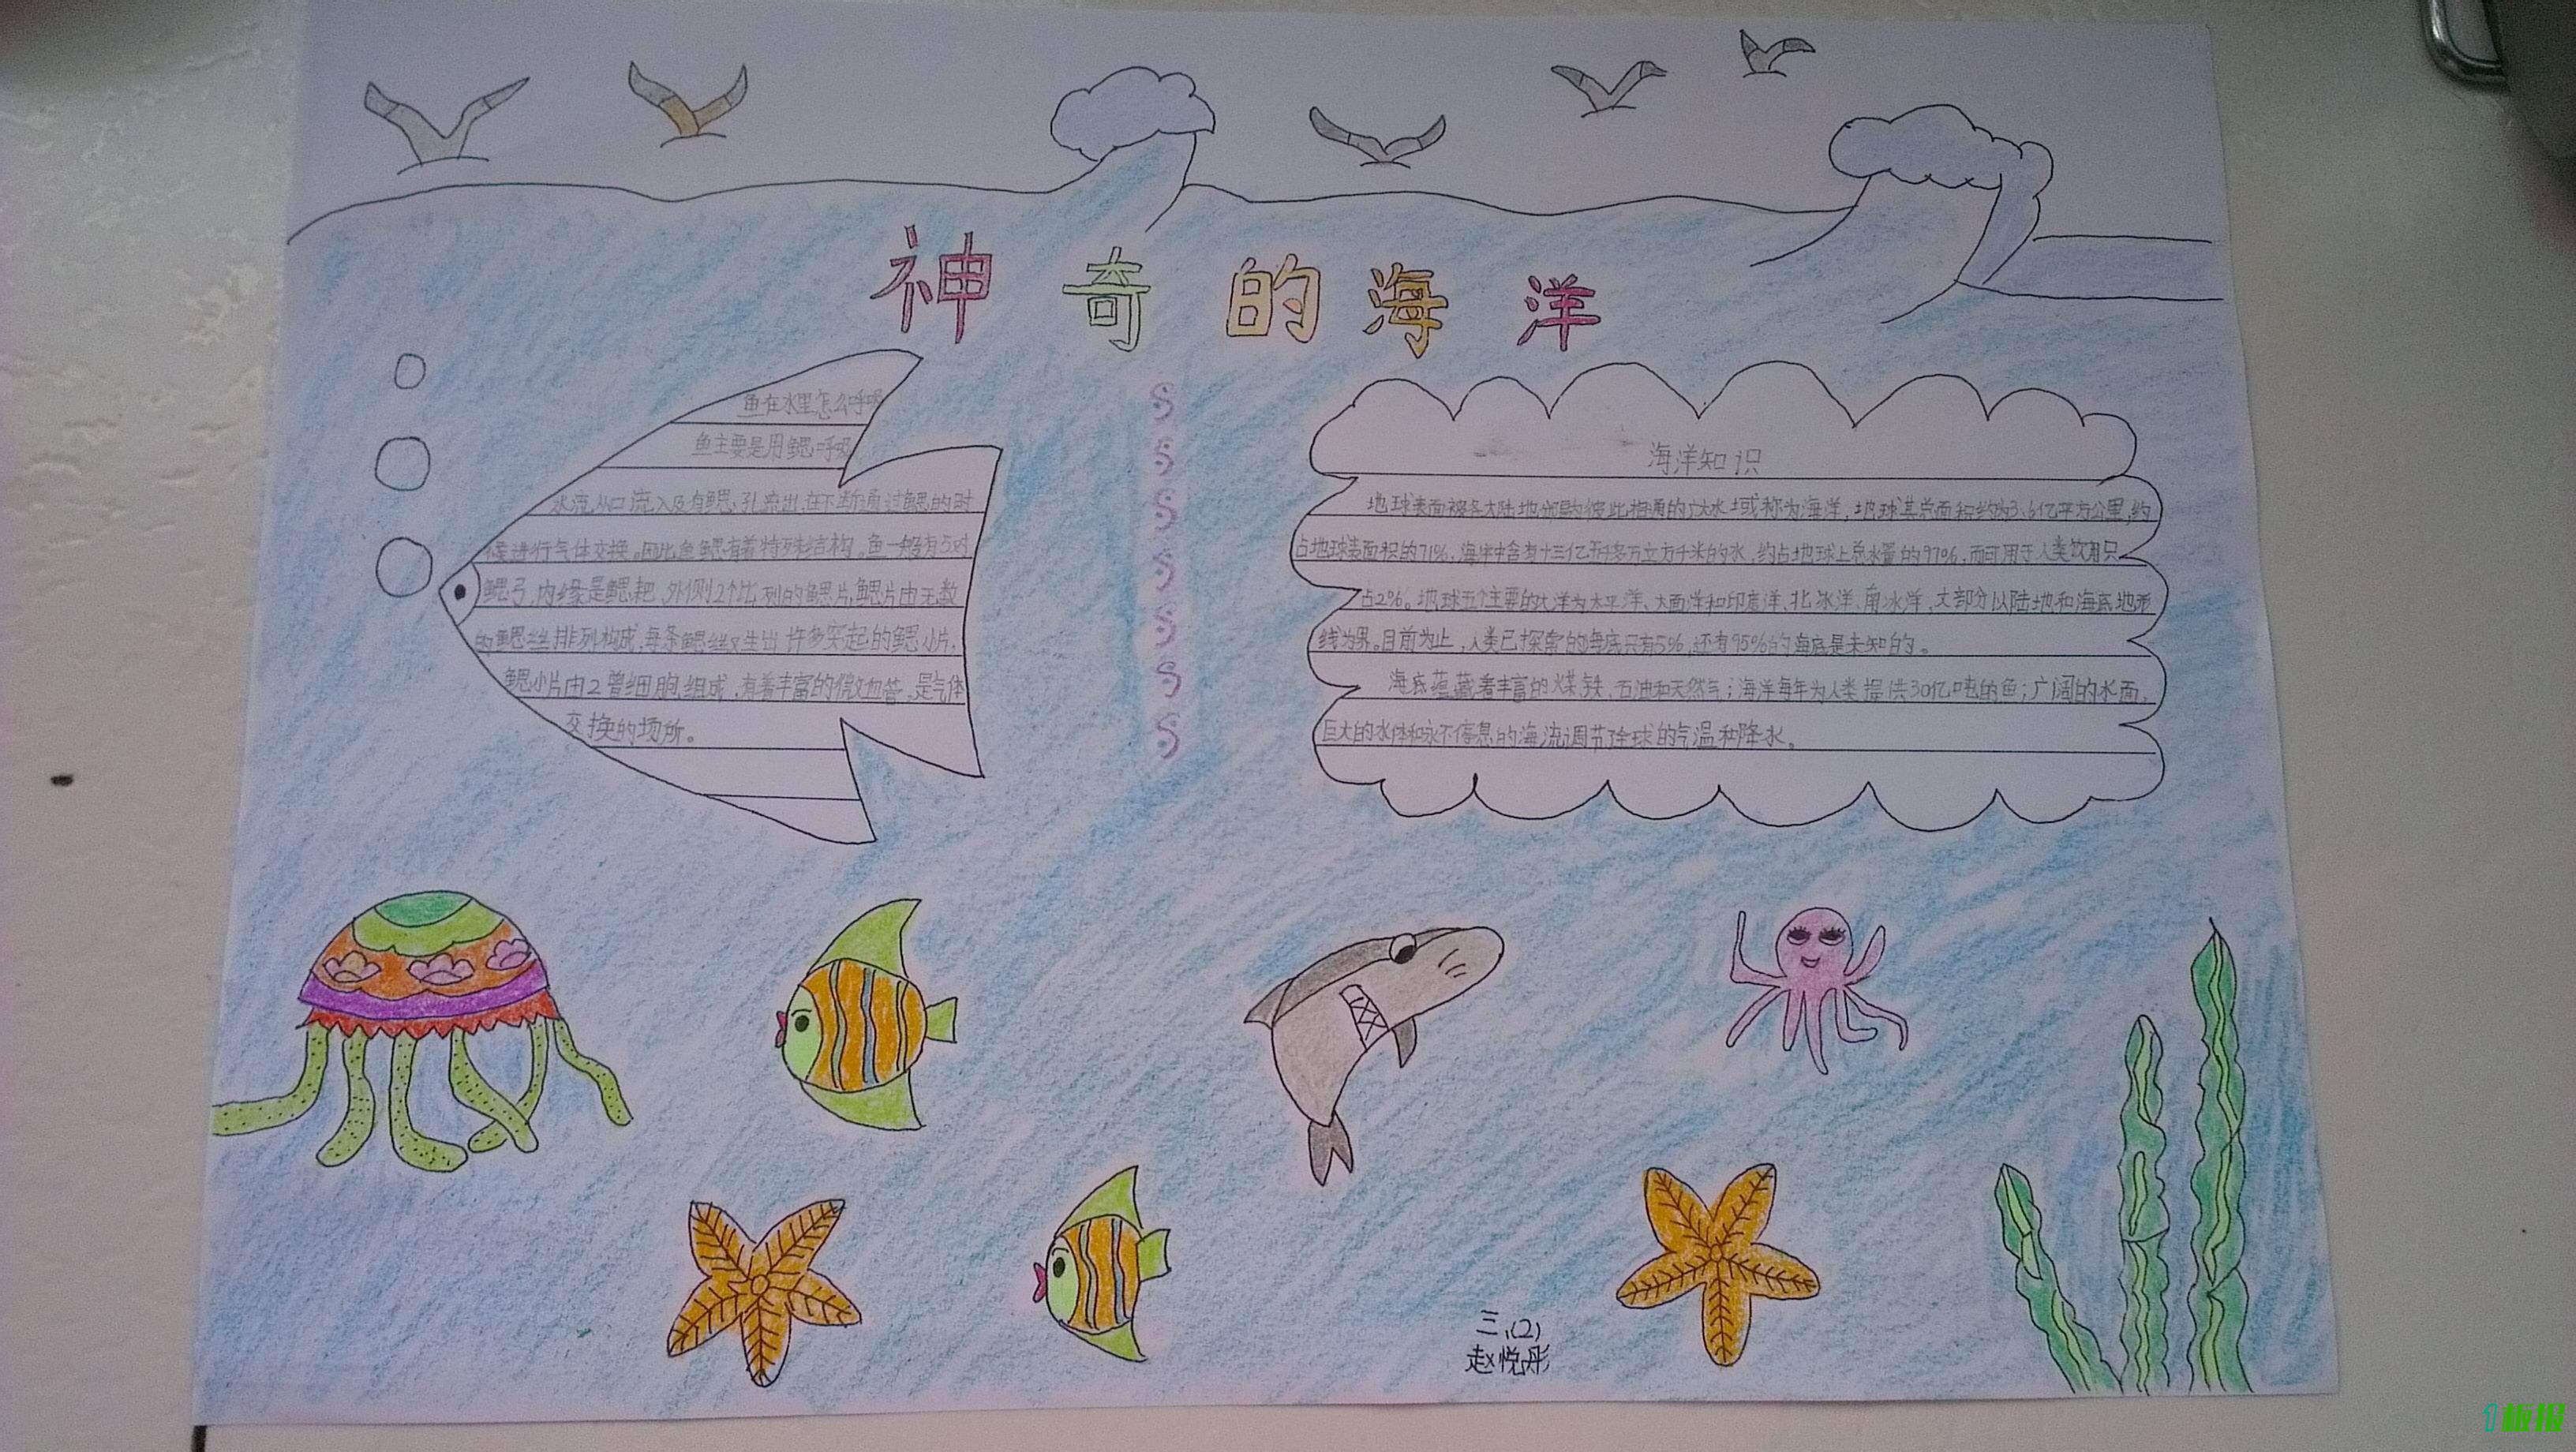 神奇的海洋
鱼在水里怎么呼吸
鱼主要是用鳃呼吸
水流从口流入及有鳃孔流出,在不断通过鳃的时
候进行气体交换。因此鱼鳃有着特殊结构。鱼一般有5对
鳃弓,内缘是鳃耙,外侧2个比列的鳃片,鳃片由无数
的鳃丝排列构成,每条鳃丝又生出许多突起的鳃小片,
鳃小片由2曾细胞组成,有着丰富的微血管,是气体
交换的场所。
S
S
S
S
S
S
S
海洋知识
地球表面被各大陆地分割为彼此相通的广大水域称为海洋,地球其总面积约为3.6亿平方公里,约
占地球表面积的71%,海洋中含有十三亿五千多万立方千米的水,约占地球上总水量的97%,而可用于人类饮用只
占2%。地球五个主要的大洋为太平洋、大西洋和印度洋、北冰洋、南冰洋,大部分以陆地和海底地形
线为界。目前为止,人类已探索的海底只有5%,还有95%的海底是未知的。
海底蕴藏着丰富的煤铁、石油和天然气;海洋每年为人类提供30亿吨的鱼;广阔的水面,
巨大的水体和永不停息的海流调节全球的气温和降水。
三.(2)
赵悦彤
1板报